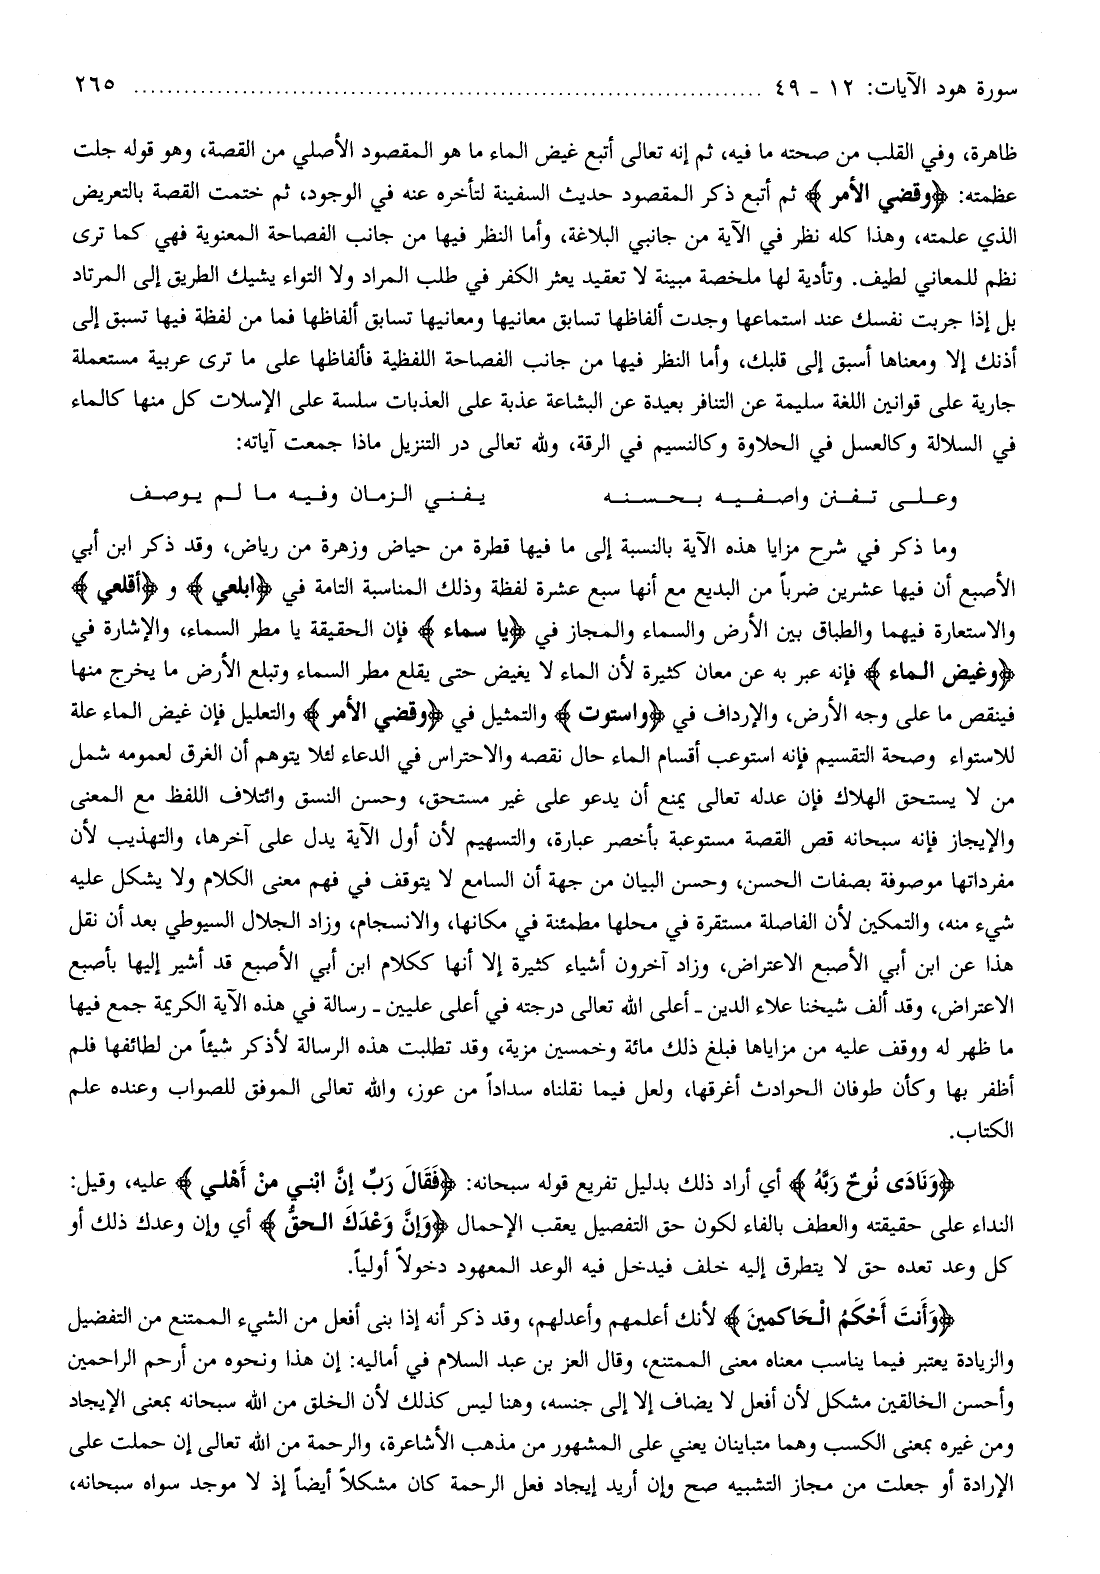 سورة هود الآيات: ١٢ - ٤٩ ................................................ ٢٦٥
ظاهرة، وفي القلب من صحته ما فيه، ثم إنه تعالى أتبع غيض الماء ما هو المقصود الأصلي من القصة، وهو قوله جلت
عظمته: ﴿وقضي الأمر﴾ ثم أتبع ذكر المقصود حديث السفينة لتأخره عنه في الوجود، ثم ختمت القصة بالتعريض
الذي علمته، وهذا كله نظر في الآية من جانبي البلاغة، وأما النظر فيها من جانب الفصاحة المعنوية فهي كما ترى
نظم للمعاني لطيف. وتأدية لها ملخصة مبينة لا تعقيد يعثر الكفر في طلب المراد ولا التواء يشيك الطريق إلى المرتاد
بل إذا جربت نفسك عند استماعها وجدت ألفاظها تسابق معانيها ومعانيها تسابق ألفاظها فما من لفظة فيها تسبق إلى
أذنك إلا ومعناها أسبق إلى قلبك، وأما النظر فيها من جانب الفصاحة اللفظية فألفاظها على ما ترى عربية مستعملة
جارية على قوانين اللغة سليمة عن التنافر بعيدة عن البشاعة عذبة على العذبات سلسة على الإسلات كل منها كالماء
في السلالة وكالعسل في الحلاوة وكالنسيم في الرقة، ولله تعالى در التنزيل ماذا جمعت آياته:
وعلى تفنن واصفيه بحسنه يفني الزمان وفيه ما لم يوصف
وما ذكر في شرح مزايا هذه الآية بالنسبة إلى ما فيها قطرة من حياض وزهرة من رياض، وقد ذكر ابن أبي
الأصبع أن فيها عشرين ضرباً من البديع مع أنها سبع عشرة لفظة وذلك المناسبة التامة في ﴿ابلعي﴾ و ﴿أقلعي﴾
والاستعارة فيهما والطباق بين الأرض والسماء والمجاز في ﴿يا سماء﴾ فإن الحقيقة يا مطر السماء، والإشارة في
﴿وغيض الماء﴾ فإنه عبر به عن معان كثيرة لأن الماء لا يغيض حتى يقلع مطر السماء وتبلع الأرض ما يخرج منها
فينقص ما على وجه الأرض، والإرداف في ﴿واستوت﴾ والتمثيل في ﴿وقضي الأمر﴾ والتعليل فإن غيض الماء علة
للاستواء وصحة التقسيم فإنه استوعب أقسام الماء حال نقصه والاحتراس في الدعاء لئلا يتوهم أن الغرق لعمومه شمل
من لا يستحق الهلاك فإن عدله تعالى يمنع أن يدعو على غير مستحق، وحسن النسق وائتلاف اللفظ مع المعنى
والإيجاز فإنه سبحانه قص القصة مستوعبة بأخصر عبارة، والتسهيم لأن أول الآية يدل على آخرها، والتهذيب لأن
مفرداتها موصوفة بصفات الحسن، وحسن البيان من جهة أن السامع لا يتوقف في فهم معنى الكلام ولا يشكل عليه
شيء منه، والتمكين لأن الفاصلة مستقرة في محلها مطمئنة في مكانها، والانسجام، وزاد الجلال السيوطي بعد أن نقل
هذا عن ابن أبي الأصبع الاعتراض، وزاد آخرون أشياء كثيرة إلا أنها ككلام ابن أبي الأصبع قد أشير إليها بأصبع
الاعتراض، وقد ألف شيخنا علاء الدين - أعلى الله تعالى درجته في أعلى عليين - رسالة في هذه الآية الكريمة جمع فيها
ما ظهر له ووقف عليه من مزاياها فبلغ ذلك مائة وخمسين مزية، وقد تطلبت هذه الرسالة لأذكر شيئاً من لطائفها فلم
أظفر بها وكأن طوفان الحوادث أغرقها، ولعل فيما نقلناه سداداً من عوز، والله تعالى الموفق للصواب وعنده علم
الكتاب.
﴿وَنَادَى نُوحٌ رَبَّهُ﴾ أي أراد ذلك بدليل تفريع قوله سبحانه: ﴿فَقَالَ رَبِّ إِنَّ ابْني منْ أَهْلي﴾ عليه، وقيل:
النداء على حقيقته والعطف بالفاء لكون حق التفصيل يعقب الإجمال ﴿وَإِنَّ وَعْدَكَ الحقُّ﴾ أي وإن وعدك ذلك أو
كل وعد تعده حق لا يتطرق إليه خلف فيدخل فيه الوعد المعهود دخولاً أولياً.
﴿وَأَنتَ أَحْكَمُ الْحَاكمينَ﴾ لأنك أعلمهم وأعدلهم، وقد ذكر أنه إذا بنى أفعل من الشيء الممتنع من التفضيل
والزيادة يعتبر فيما يناسب معناه معنى الممتنع، وقال العز بن عبد السلام في أماليه: إن هذا ونحوه من أرحم الراحمين
وأحسن الخالقين مشكل لأن أفعل لا يضاف إلا إلى جنسه، وهنا ليس كذلك لأن الخلق من الله سبحانه بمعنى الإيجاد
ومن غيره بمعنى الكسب وهما متباينان يعني على المشهور من مذهب الأشاعرة، والرحمة من الله تعالى إن حملت على
الإرادة أو جعلت من مجاز التشبيه صح وإن أريد إيجاد فعل الرحمة كان مشكلاً أيضاً إذ لا موجد سواه سبحانه،